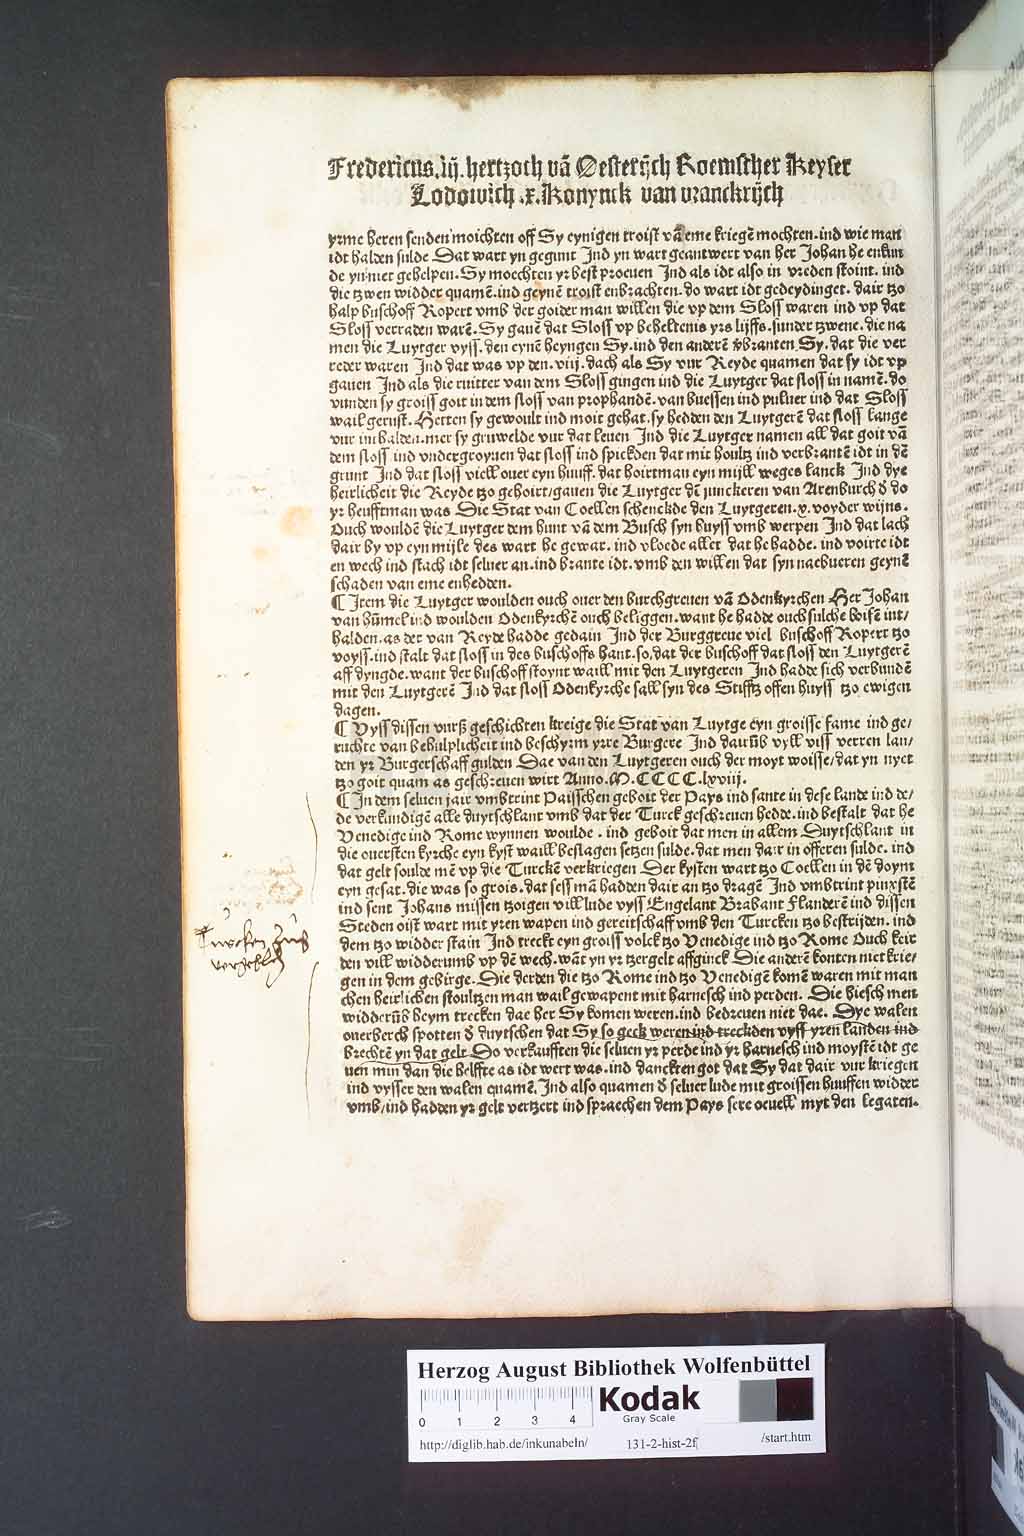 Fredericus.iij. hertzoch vā Oesterijch Roemscher Keyser
Lodowich .x. Konynck van vranckrijch
yrme heren senden moichten off Sy eynigen troist vā eme kriegē mochten. ind wie man
idt halden sulde Dat wart yn gegunt Ind yn wart geantwert van her Johan he enkun
de yn niet gehelpen. Sy moechten yr best proeuen Ind als idt also in vreden stoint. ind
die tzwen widder quamē. ind geynē troist enbrachten. do wart idt gedeydinget. dair tzo
halp buschoff Ropert vmb der goider man willen die vp dem Sloss waren ind vp dat
Sloss verraden warē. Sy gauē dat Sloss vp beheltenis yrs lijffs. sunder tzwene. die na
men die Luytger vyss. den eynē heyngen Sy. ind den anderē vbranten Sy. dat die ver
reder waren Ind dat was vp den. viij. dach als Sy vur Reyde quamen dat sy idt vp
gauen Ind als die ruitter van dem Sloss gingen ind die Luytger dat sloss in namē. do
vunden sy groiss goit in dem sloss van prophandē. van buessen ind puluer ind dat Sloss
wail gerust. Hetten sy gewoult ind moit gehat. sy hedden den Luytgerē dat sloss lange
vur int halden. mer sy gruwelde vur dat leuen Ind die Luytger namen all dat goit vā
dem sloss ind vndergroyuen dat sloss ind spickden dat mit houltz ind verbrantē idt in dē
grunt Ind dat sloss viell ouer eyn huuff. dat hoirtman eyn mijll weges lanck Ind dye
heirlicheit die Reyde tzo gehoirt/gauen die Luytger dē junckeren van Arenburch d̄ do
yr heufftman was Die Stat van Coellen schenckde den Luytgeren. x. voyder wijns.
Ouch wouldē die Luytger dem hunt vā dem Busch syn huyss vmb werpen Ind dat lach
dair by vp eyn mijle des wart he gewar. ind vloede allet dat he hadde. ind voirte idt
en wech ind stach idt seluer an. ind brante idt. vmb den willen dat syn naebueren geynē
schaden van eme enhedden.
¶ Item die Luytger woulden ouch ouer den burchgreuen vā Odenkyrchen Her Johan
van hūmel ind woulden Odenkyrchē ouch beliggen. want he hadde ouch sulche boisē int/
halden. as der van Reyde hadde gedain Ind der Burggreue viel buschoff Ropert tzo
voyss. ind stalt dat sloss in des buschoffs hant. so. dat der buschoff dat sloss den Luytgerē
aff dyngde. want der buschoff stoynt waill mit den Luytgeren Ind hadde sich verbundē
mit den Luytgerē Ind dat sloss Odenkyrche sall syn des Stifftz offen huyss tzo ewigen
dagen.
¶ Vyss dissen vurß geschichten kreige die Stat van Luytge eyn groisse fame ind ge/
ruchte van behulplicheit ind beschyrm yrre Burgere Ind dairūb vyll viss verren lan/
den yr Burgerschaff gulden Dae van den Luytgeren ouch der moyt woisse/dat yn nyet
tzo goit quam as geschreuen wirt Anno. M.CCCC.lxviij.
¶ In dem seluen jair vmbtrint Paisschen geboit der Pays ind sante in dese lande ind de/
de verkundigē alle duytschlant vmb dat der Turck geschreuen hedde. ind bestalt dat he
Venedige ind Rome wynnen woulde . ind geboit dat men in allem Duytschlant in
die ouersten kyrche eyn kyst waill beslagen setzen sulde. dat men dair in offeren sulde. ind
dat gelt soulde mē vp die Turckē verkriegen Der kysten wart tzo Coellen in dē doym
eyn gesat. die was so grois. dat sess mā hadden dair an tzo dragē Ind vmbtrint pinxstē
ind sent Johans missen tzoigen vill lude vyss Engelant Brabant Flanderē ind dissen
Steden oist wart mit yren wapen ind gereitschaff vmb den Turcken tzo bestrijden. ind
dem tzo widder stain Ind treckt eyn groiss volck tzo Venedige ind tzo Rome Ouch keir
den vill widderumb vp dē wech. wāt yn yr tzergelt affginck Die anderē konten niet krie/
gen in dem gebirge. Die derden die tzo Rome ind tzo Venedigē komē waren mit man
chen heirlichen stoultzen man wail gewapent mit harnesch ind perden. Die hiesch men
widderūb heym trecken dae her Sy komen weren. ind bedreuen niet dae. Dye walen
ouerberch spotten d̄ duytschen dat Sy so geck weren ind treckden vyss yren landen ind
brechtē yn dat gelt Do verkaufften die seluen yr perde ind yr harnesch ind moystē idt ge
uen min dan die helffte as idt wert was. ind danckten got dat Sy dat dair vur kriegen
ind vysser den walen quamē. Ind also quamen d̄ seluer lude mit groissen huuffen widder
vmb/ind hadden yr gelt vertzert ind spraechen dem Pays sere oeuell myt den legaten.
Turcken
Herzog August Bibliothek Wolfenbüttel
0 1 2 3 4
Kodak
Gray Scale
http://diglib.hab.de/inkunabeln/ 131-2-hist-2f /start.htm